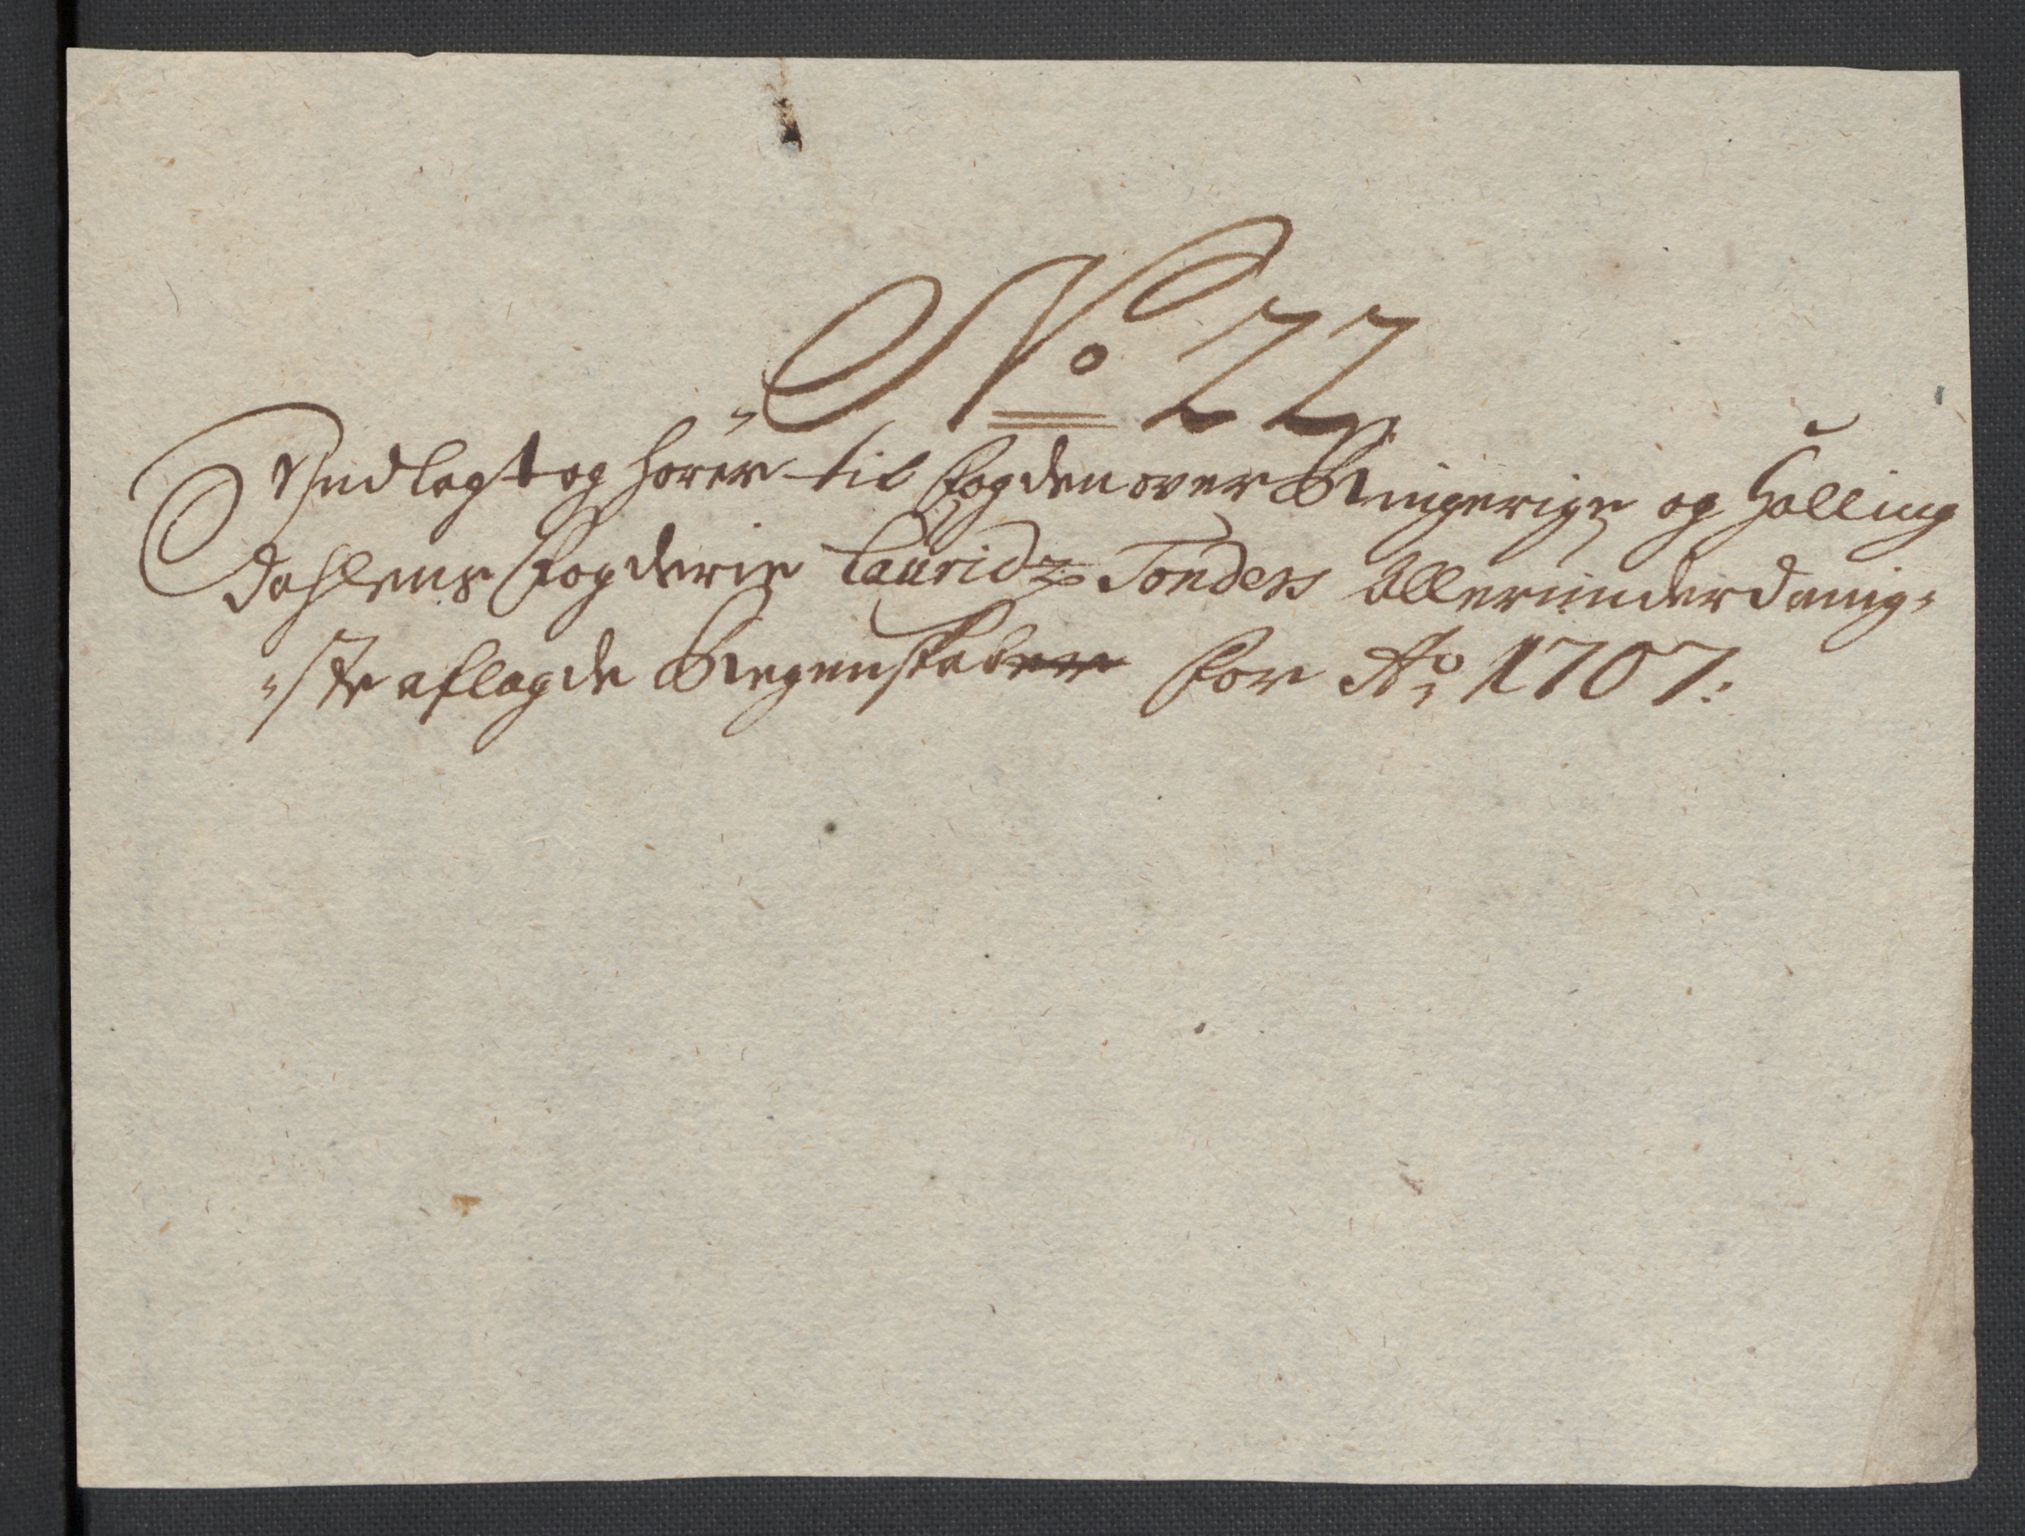 No 22
Indlagt og hører til fogden over Ringerige og Halling
dahlens fogderie Lauridz Tonders Allerunderdanig-
-ste aflagde Regenskaber for Ao 1707.